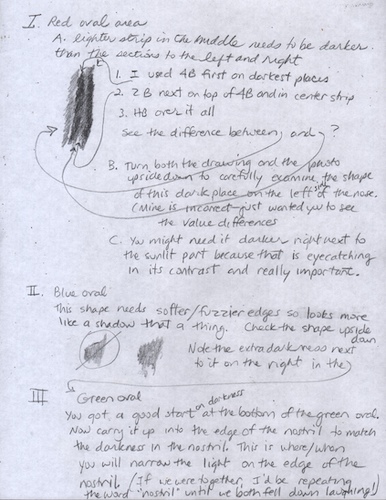 I. Red oval area
A. lighter strip in the middle needs to be darker
than the sections to the left and right
1. I used 4B first on darkest places
2. 2B next on top of 4B and in center strip
3. HB over it all
See the difference between, and ?
B. Turn both the drawing and the photo
upside down to carefully examine the shape
of this dark place on the left side of the nose.
(Mine is incorrect just wanted you to see
the value differences
C. You might need it darker right next to
the sunlit part because that is eyecatching
in its contrast and really important.
II. Blue oval
This shape needs softer/fuzzier edges so looks more
like a shadow that a thing. Check the shape upside
down
Note the extra darkness next
to it on the right in the
III Green oval
You got a good start on darkness at the bottom of the green oval.
Now carry it up into the edge of the nostril to match
the darkness in the nostril. This is where/when
you will narrow the light on the edge of the
nostril. (If we were together, I'd be repeating
the word "nostril" until we both fell down laughing!)